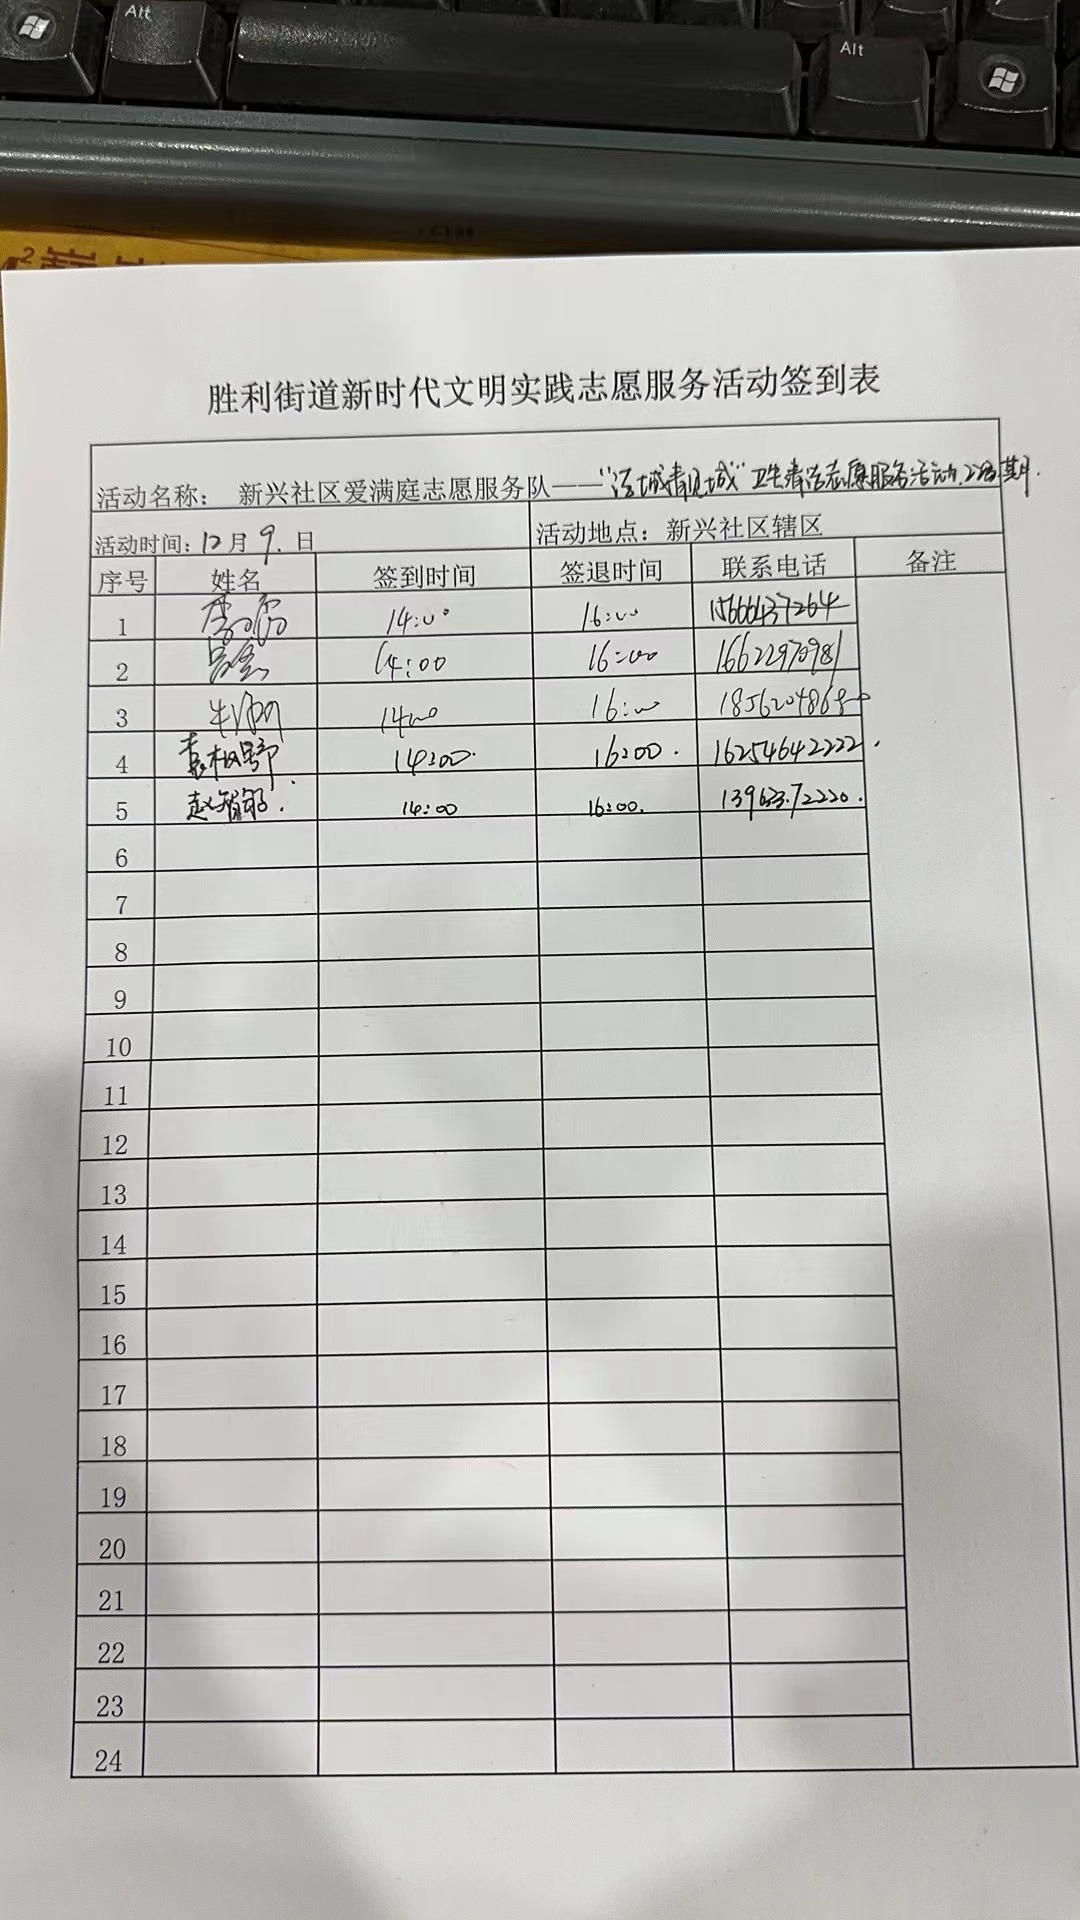 Alt
Alt
胜利街道新时代文明实践志愿服务活动签到表
活动名称： 新兴社区爱满庭志愿服务队——“ 城清 城”卫生清洁志愿服务活动.2 期.
活动时间：12月9.日 活动地点：新兴社区辖区
序号 姓名 签到时间 签退时间 联系电话 备注
1 14:00 16:00 15666437264
2 14:00 16:00 16622970981
3 1400 16:00
4 14:00. 16:00. 16254642222.
5 赵 14:00 16:00.
6
7
8
9
10
11
12
13
14
15
16
17
18
19
20
21
22
23
24